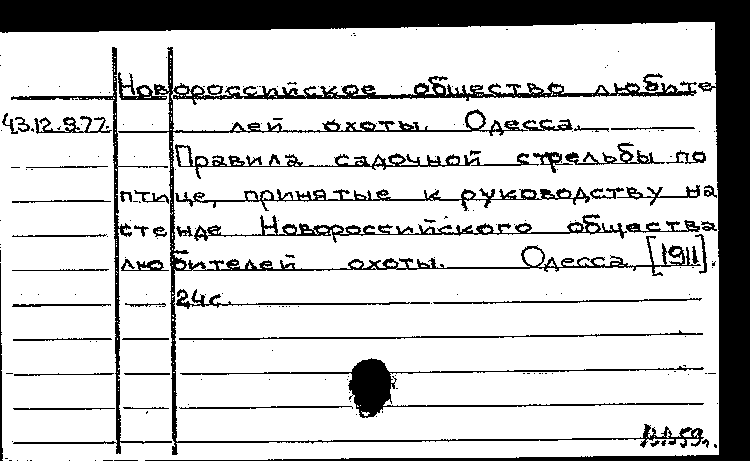 Новороссийское общество любите-
43.12.9.77. лей охоты. Одесса.
Правила садочной стрельбы по
птице, принятые к руководству на
стенде Новороссийского общества
любителей охоты. Одесса, [1911].
24с.